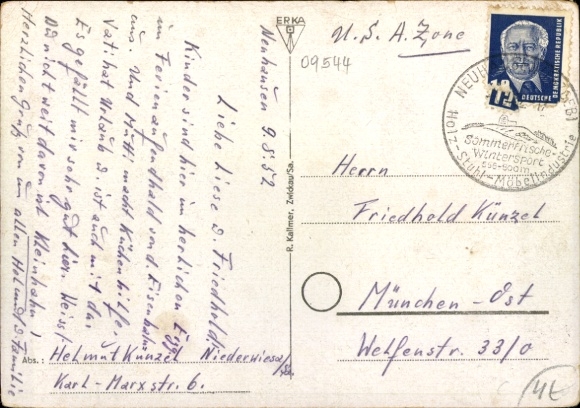 Neuhausen 9.8.52
Liebe Liese u. Friedhold.
Kinder sind hier im herlichen Erzg.
im Ferienaufendhald von d. Eisenbahn
aus. Und Mutti macht Küchenhilfe,
Vati hat Urlaub u ist auch mit da.
Es gefällt mir sehr gut hier. Weisst
Du nicht weit davon mit Kleinbahn!
Herzlichen Gruß von uns allen Helmut u. Familie
Abs.: Helmut Künzel Niederwiesa/Sa.
Karl-Marxstr. 6.
ERKA
R. Kallmer, Zwickau/Sa.
U.S.A. Zone
09544
DEUTSCHE
DEMOKRATISCHE REPUBLIK
Sommerfrische-
Wintersport
Holz-Stuhl-Möbelindustrie
Herrn
Friedhold Künzel
München-Ost
Welfenstr. 33/0